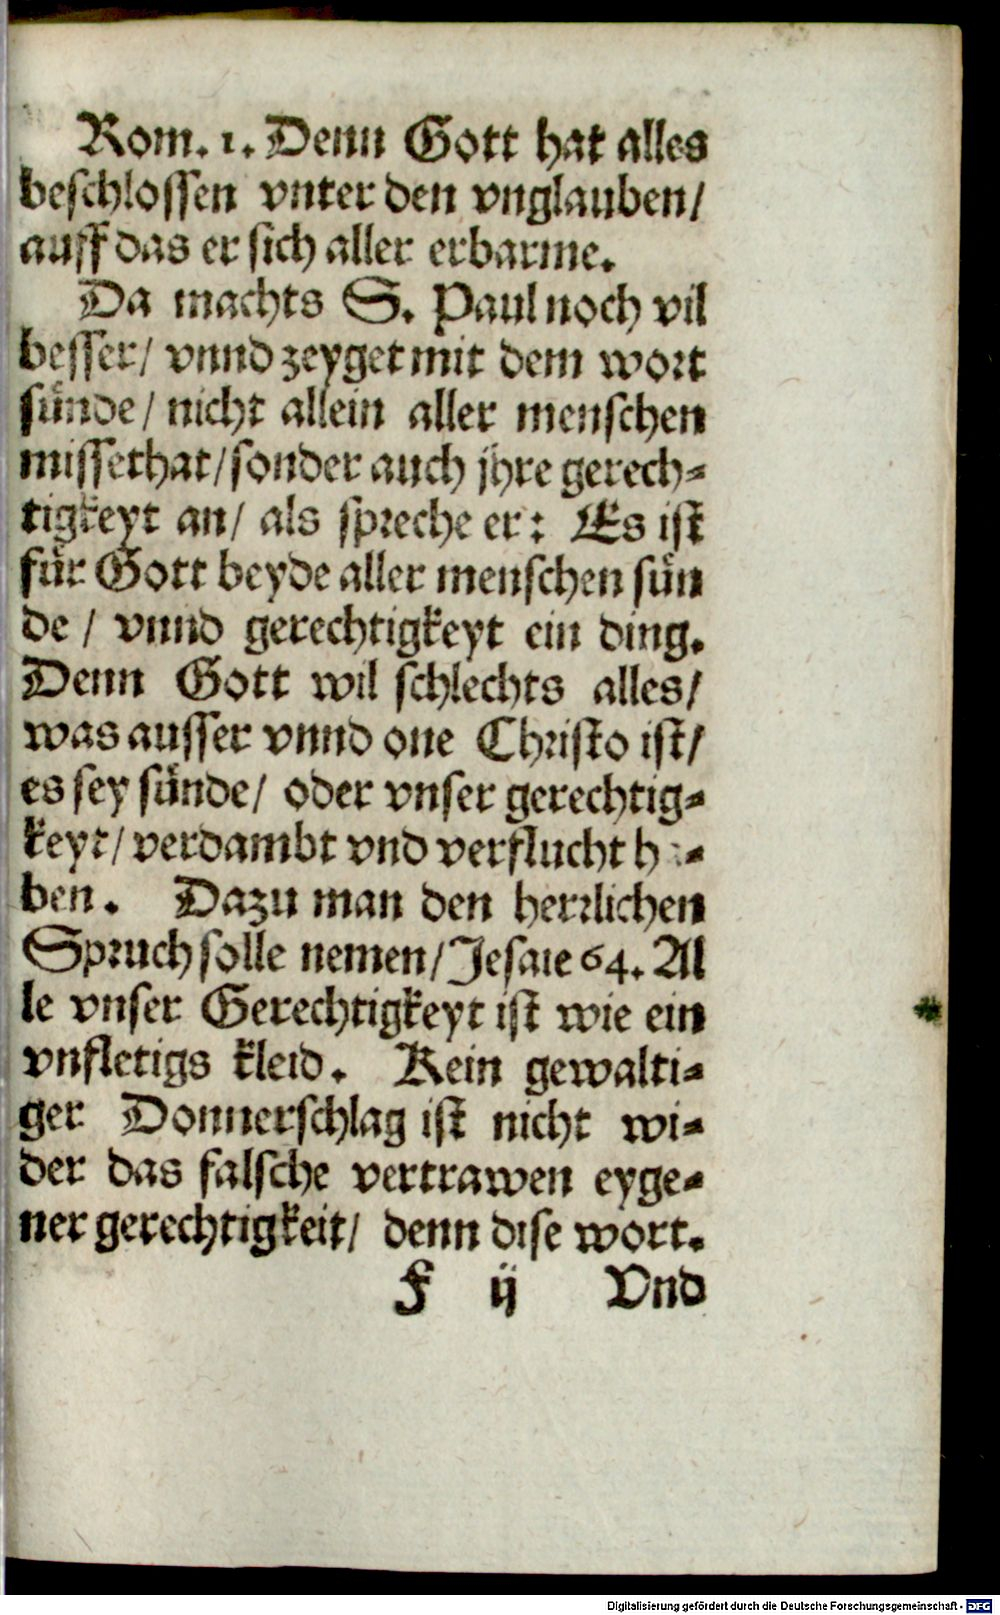 Rom. 1. Denn Gott hat alles
beschlossen vnter den vnglauben/
auff das er sich aller erbarme.
Da machts S. Paul noch vil
besser/ vnnd zeyget mit dem wort
sünde/ nicht allein aller menschen
missethat/ sonder auch jhre gerech-
tigkeyt an/ als spreche er: Es ist
für Gott beyde aller menschen sün
de/ vnnd gerechtigkeyt ein ding.
Denn Gott wil schlechts alles/
was ausser vnnd one Christo ist/
es sey sünde/ oder vnser gerechtig-
keyt/ verdambt vnd verflucht ha-
ben. Dazu man den herrlichen
Spruch solle nemen/ Jesaie 64. Al
le vnser Gerechtigkeyt ist wie ein
vnfletigs kleid. Kein gewalti-
ger Donnerschlag ist nicht wi-
der das falsche vertrawen eyge-
ner gerechtigkeit/ denn dise wort.
F ij Vnd
Digitalisierung gefördert durch die Deutsche Forschungsgemeinschaft - DFG